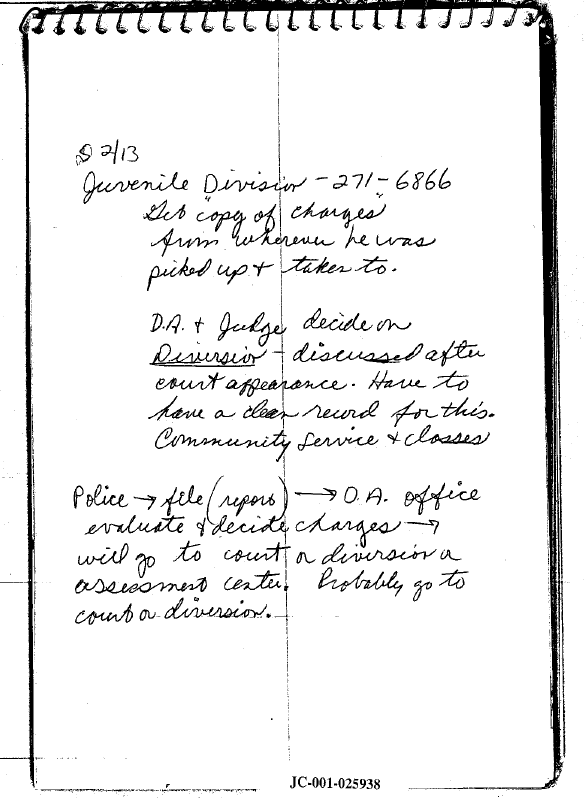 2/13
Juvenile Division - 271-6866
Get "copy of charges"
from wherever he was
picked up & taken to.
D.A. & Judge decide on
Diversion - discussed after
court appearance. Have to
have a clean record for this.
Community Service & classes
Police → file (report) → D.A. office
evaluate & decide charges →
will go to court or diversion or
assessment center. Probably go to
court or diversion.
JC-001-025938